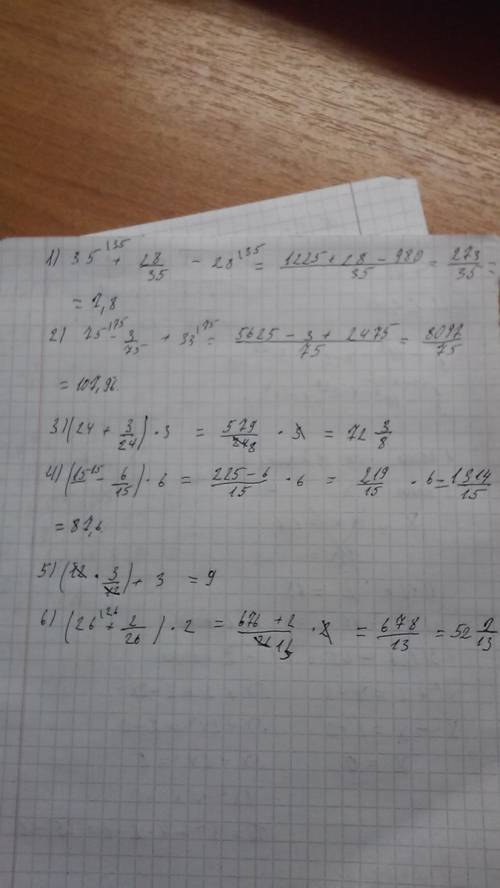 1) 35^(135 + 28/35 - 28^(135 = (1225 + 28 - 980)/35 = 273/35 =
= 7,8
2) 75^(175 - 3/75 + 33^(175 = (5625 - 3 + 2475)/75 = 8097/75
= 107,96.
3) (24 + 3/24) · 3 = 579/248 · 3 = 72 3/8
4) (15^15 - 6/15) · 6 = (225 - 6)/15 · 6 = 219/15 · 6 = 1314/15
= 87,6
5) (12 · 3/12) + 3 = 9
6) (26^(26 + 2/26) · 2 = (676 + 2)/26 13 · 2 = 678/13 = 52 2/13